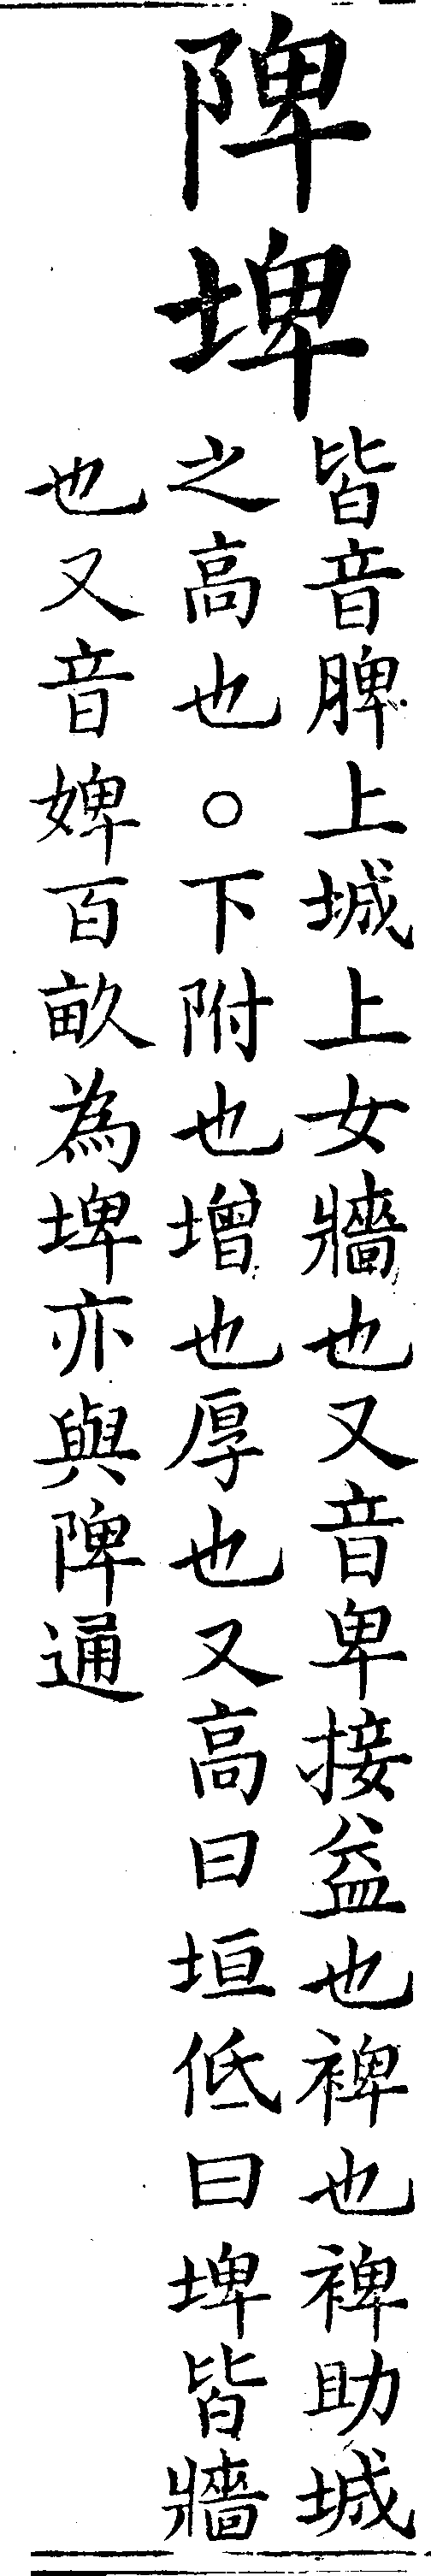 陴埤
皆音脾上城上女牆也又音卑接益也裨也裨助城
之高也○下附也增也厚也又高曰垣低曰埤皆牆
也又音婢百畝為埤亦與陴通